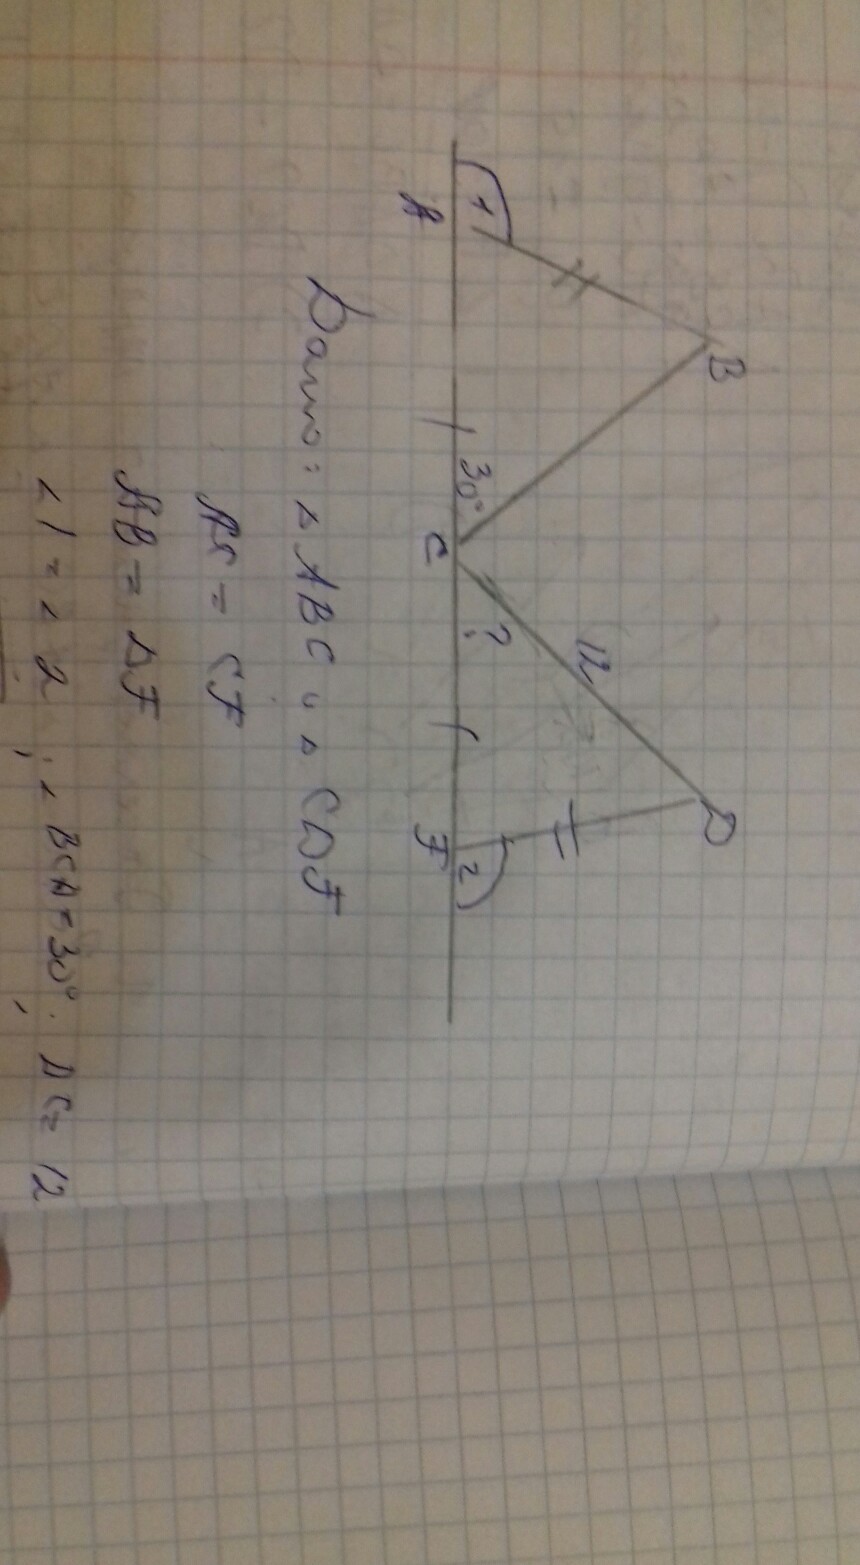 B
D
12
1
30°
?
2
A
C
F
Дано: △ ABC и △ CDF
AC = CF
AB = DF
∠1 = ∠2 ; ∠ BCA = 30°, DC = 12